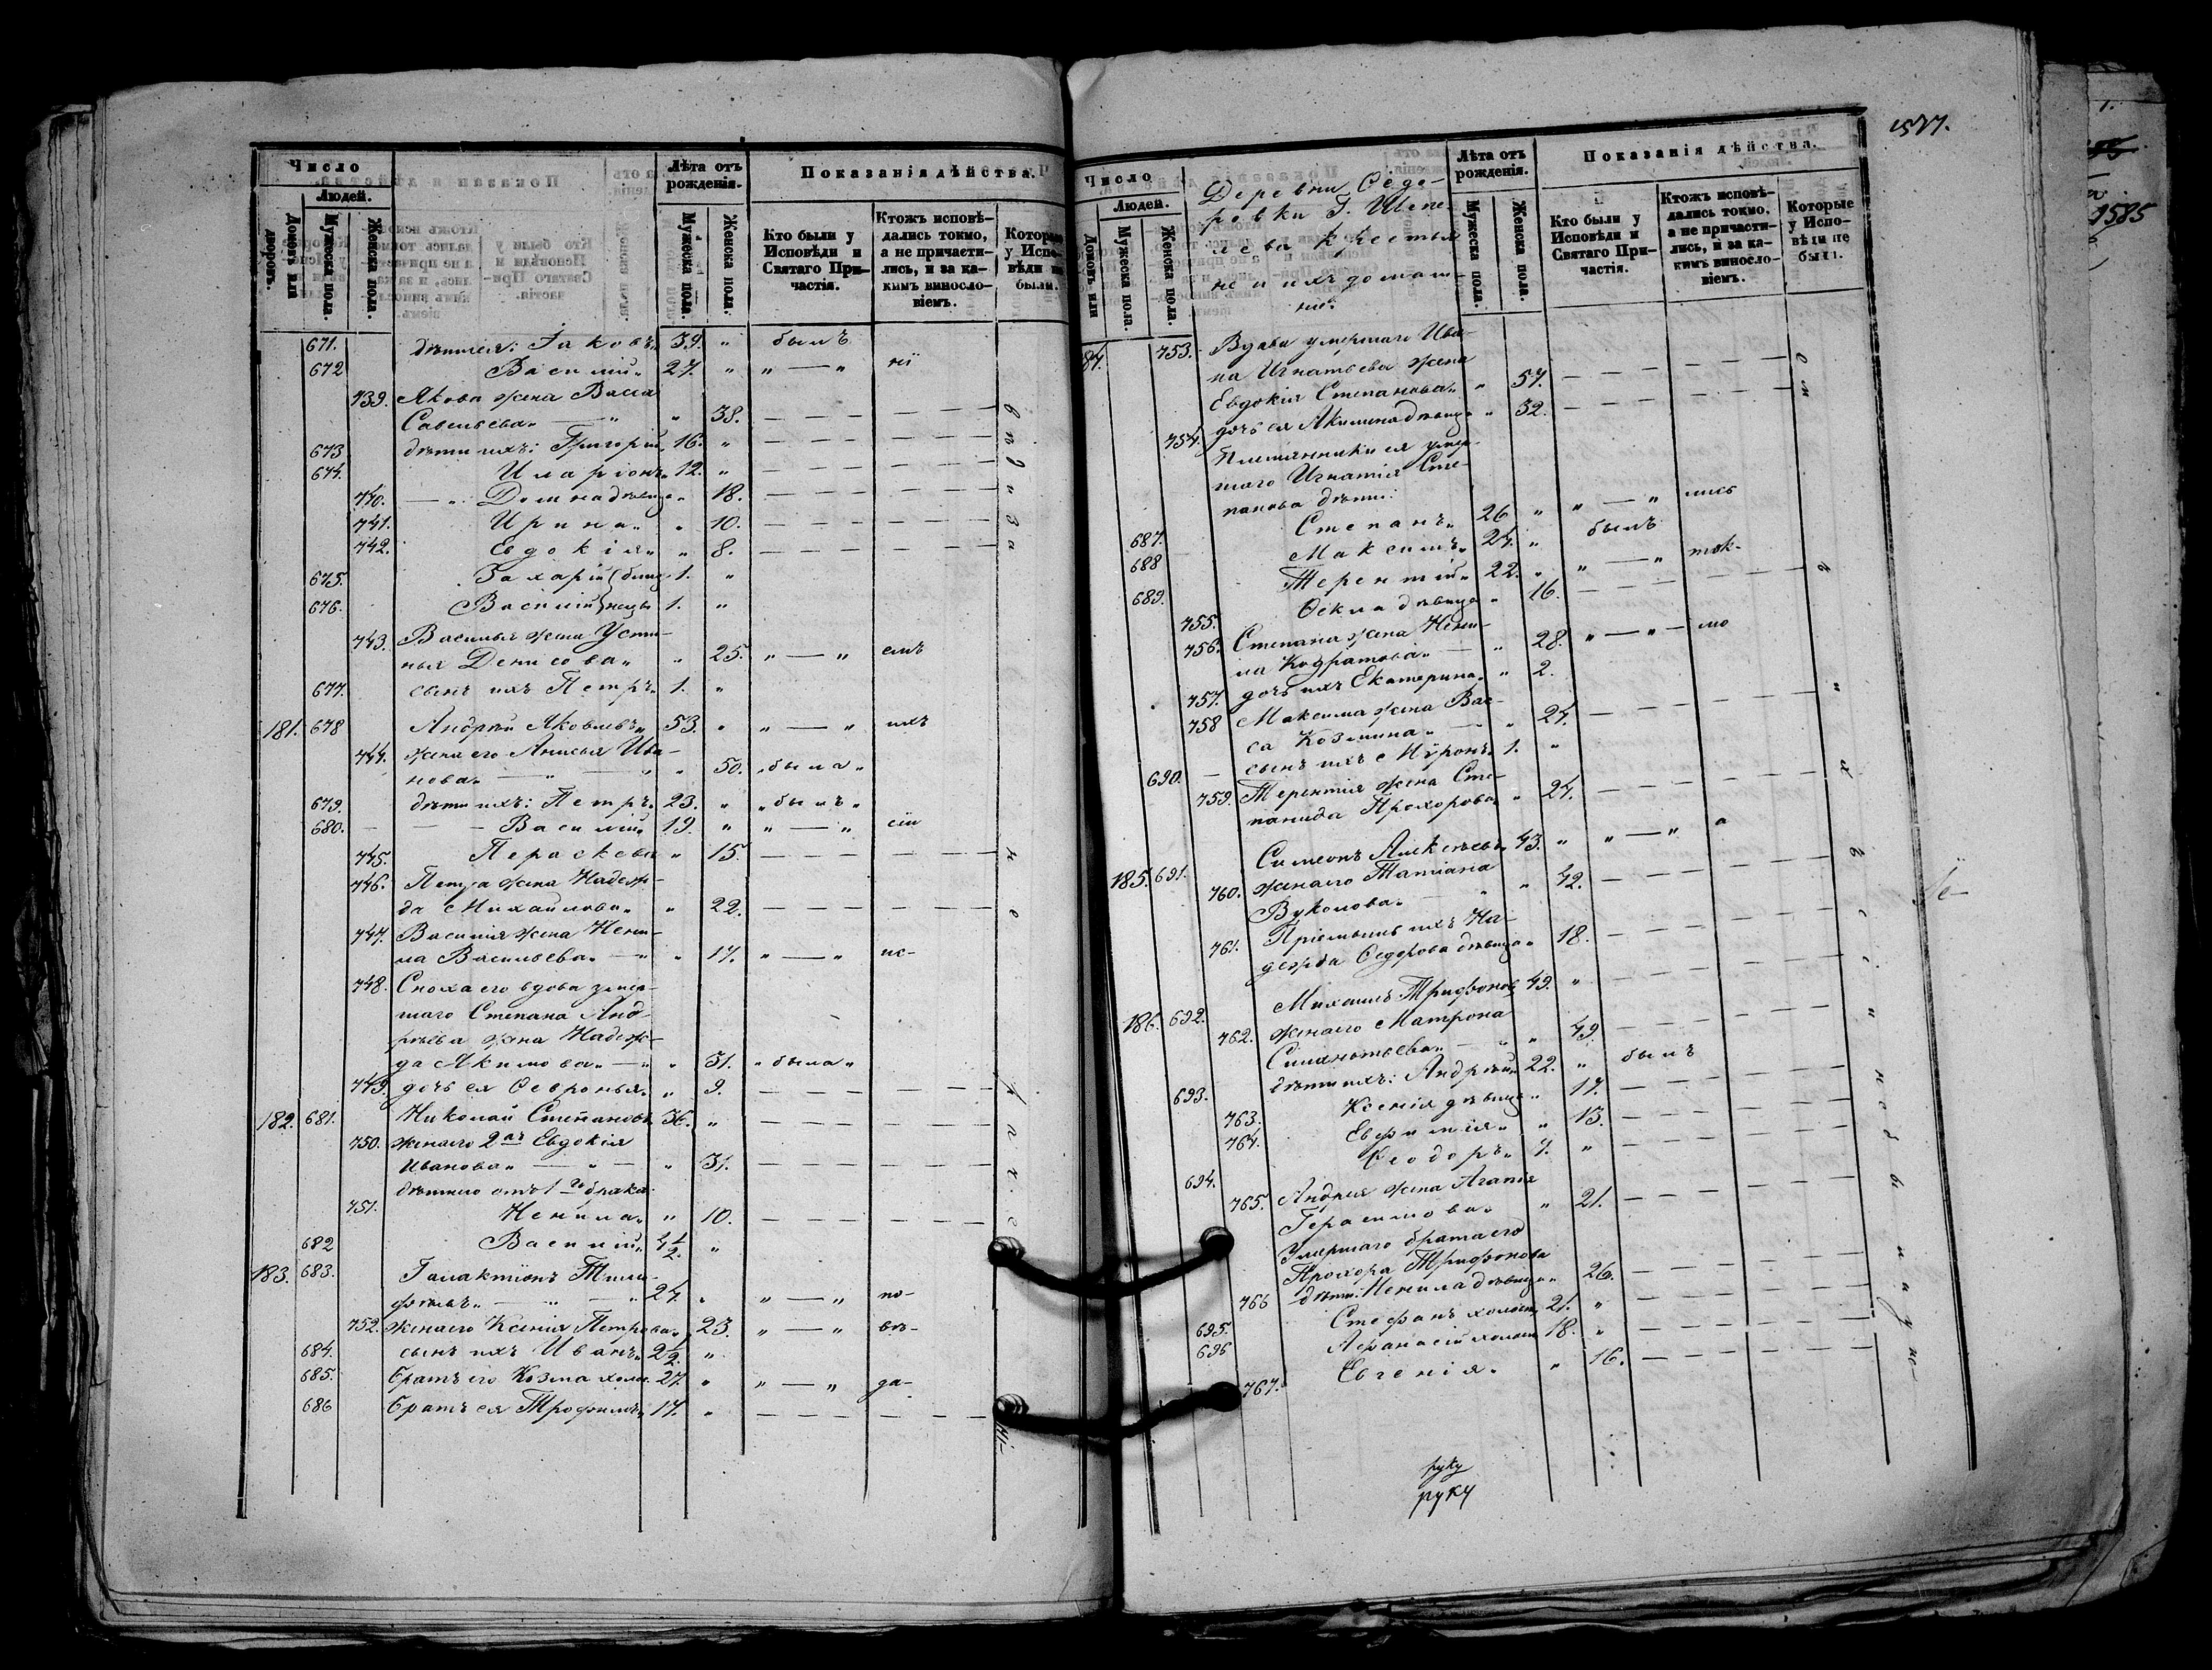 Число
Людей.
Домовъ или дворовъ.
Мужеска пола.
Женска пола.
Лѣта отъ рожденія.
Мужеска пола.
Женска пола.
Показанія дѣйства.
Кто были у Исповѣди и Святаго Причастія.
Ктожъ исповѣдались токмо, а не причастились, и за какимъ винословіемъ.
Которые у Исповѣди не были.
671. дѣти ея: Іаковъ 39. " былъ
672 Василій 27. " " — "
739. Якова жена Васса
Савельева " 38. — — —
673 дѣти ихъ: Григорій 16. " — — —
674. Иларіонъ 12. " — — —
740. Домна дѣвица " 18. — — —
741. Ирина " 10. — — —
742. Евдокія " 8. — — —
675. Захарій 1. "
676. Василій 1. "
743. Василья жена Усти-
нья Денисова " 25. " — "
677. сынъ ихъ Петръ 1. "
181. 678 Андрей Яковлевъ 53. " " — " ихъ
744. жена его Анисья Ива-
нова " 50. "была"
679. дѣти ихъ: Петръ 23. " "былъ"
680. Василій 19. " " — "
745. Пераскева " 15. — — —
746. Петра жена Надеж-
да Михайлова " 22. — — —
747. Василія жена Нени-
ла Васильева " 17. " — " ис-
748. Сноха его вдова умер-
шаго Степана Анд-
реева жена Надеж-
да Акимова " 31. "была"
749. дочь ея Февронья " 9. — — —
182. 681. Николай Степановъ 36. " — — —
750. жена его 2ая Евдокія
Иванова " 31. — — —
дѣти его отъ 1го брака:
751. Ненила " 10. — — —
682 Василій 4 1/2 "
183. 683. Галактіонъ Тимо-
фѣевъ 24. " " — " по-
752. жена его Ксенія Петрова 23. " — "
684. сынъ ихъ Иванъ 2 1/2 "
685. братъ его Козма холос. 27. " " — " да-
686 братъ ея Трофимъ 17. " — — —
1577.
Число
Людей.
Домовъ или
Мужеска пола.
Женска пола.
Деревни Седе-
ровки Г. Шепе-
лева крестья-
не и ихъ домаш-
ніе.
Лѣта отъ рожденія.
Мужеска пола.
Женска пола.
Показанія дѣйства.
Кто были у Исповѣди и Святаго Причастія.
Ктожъ исповѣдались токмо, а не причастились, и за какимъ винословіемъ.
Которые у Исповѣди не были.
753. Вдова умершаго Ива-
на Игнатьева жена
Евдокія Степанова " 57. — — —
754. дочь ея Акилина дѣвица " 32. — — —
Племянники ея умер-
шаго Игнатія Сте-
панова дѣти:
687. Степанъ 26 " " — " лись
688 Максимъ 24. " былъ
689. Терентій 22. " " — " ток-
755. Фекла дѣвица " 16. — — —
756. Степана жена Нени-
ла Кодратова " 28. " — " мо
757. дочь ихъ Екатерина " 2.
758 Максима жена Вас-
са Козмина " 24. — — —
690. сынъ ихъ Мѵронъ 1. "
759. Терентія жена Сте-
панида Прохорова " 24. — — —
185. 691. Симеонъ Алексѣевъ 43. " " — " а
760. жена его Татіана
Вуколова " 42. — — —
761. Пріемышъ ихъ На-
дежда Федорова дѣвица " 18. — — —
186. 692. Михаилъ Трифоновъ 49. " — — —
762. жена его Матрона
" 49. — — —
693. дѣти ихъ: Андрей 22. " былъ
763. Ксенія дѣвица " 17. — — —
764. Евфимія " 13. — — —
694. Феодоръ 7. " — — —
765. Андрея жена Агапія
Герасимова " 21. — — —
Умершаго брата его
Прохора Трифонова
766 дѣти: Ненила дѣвица " 26. — — —
695. Стефанъ холост 21. " — — —
696 Афанасій холост 18. " — — —
767. Евгенія " 16. — — —
руку
руку
1585